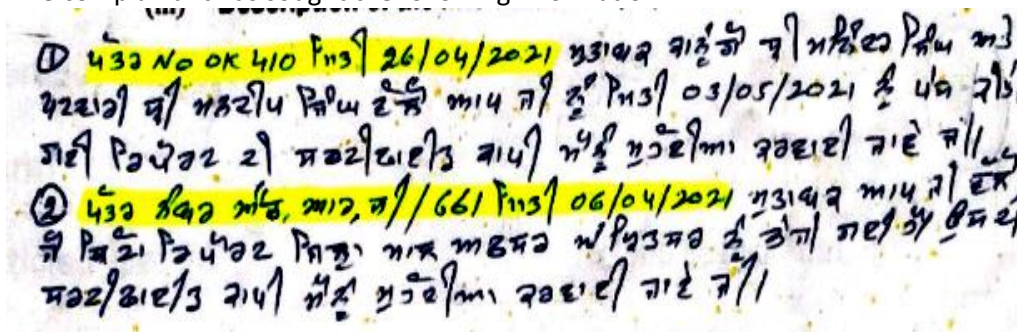 ① ਪੱਤਰ No OK 410 ਮਿਤੀ 26/04/2021 ਮੁਤਾਬਕ ਕਾਨੂੰਗੋ ਸ੍ਰੀ ਸਿੰਘ ਅਤੇ
ਪਟਵਾਰੀ ਸ੍ਰੀ ਸਿੰਘ ਵੱਲੋਂ ਆਪ ਜੀ ਨੂੰ ਮਿਤੀ 03/05/2021 ਨੂੰ ਪੇਸ਼ ਕੀਤੀ
ਗਈ ਰਿਪੋਰਟ ਦੀ ਸਰਟੀਫਾਈਡ ਕਾਪੀ ਮੈਨੂੰ ਮੁਹੱਈਆ ਕਰਵਾਈ ਜਾਵੇ ਜੀ।
② ਪੱਤਰ ਨੰਬਰ ਆਰ, ਜੀ//661 ਮਿਤੀ 06/04/2021 ਮੁਤਾਬਕ ਆਪ ਜੀ ਵੱਲੋਂ
ਜੋ ਰਿਪੋਰਟ ਜਿਲ੍ਹਾ ਮਾਲ ਅਫਸਰ ਅੰਮ੍ਰਿਤਸਰ ਨੂੰ ਭੇਜੀ ਗਈ ਹੈ ਉਸਦੀ
ਸਰਟੀਫਾਈਡ ਕਾਪੀ ਮੈਨੂੰ ਮੁਹੱਈਆ ਕਰਵਾਈ ਜਾਵੇ ਜੀ।